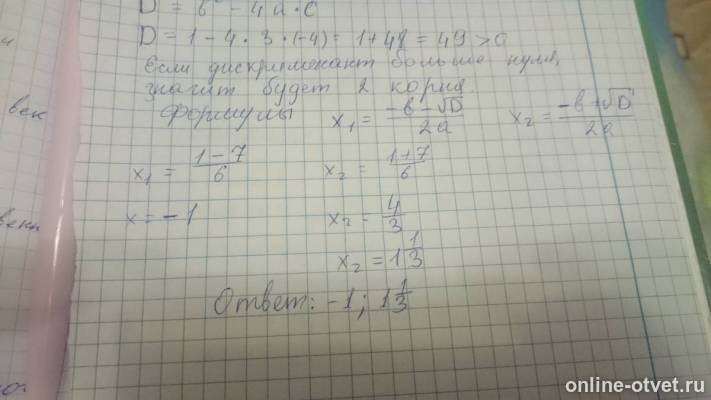 D = в² - 4а·с
D = 1 - 4 · 3 · (-4) = 1 + 48 = 49 > 0
век
Если дискременант больше нуля,
значит будет 2 корня.
Формулы x₁ = (-в - √D)/2а x₂ = (-в + √D)/2а
x₁ = (1 - 7)/6 x₂ = (1 + 7)/6
x = -1 x₂ = 4/3
x₂ = 1 1/3
Ответ: -1; 1 1/3
online-otvet.ru